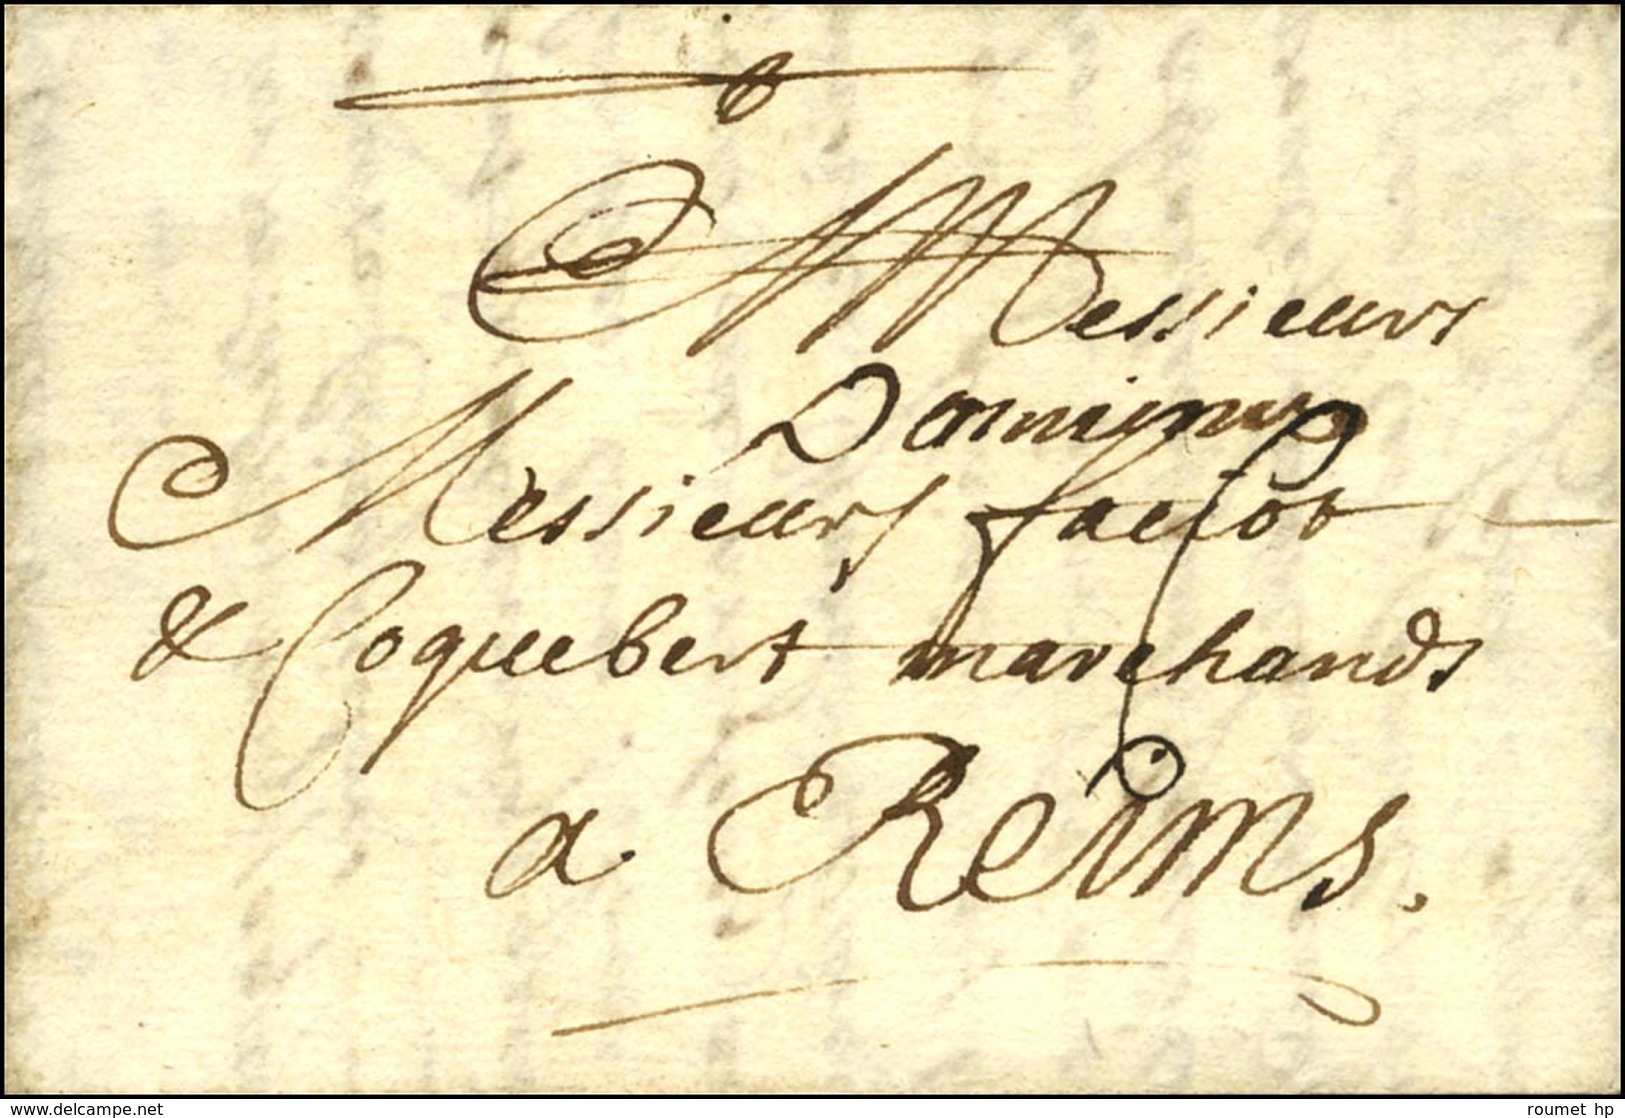 Messieurs
Damiens
Messieurs faciot
& Coquebert marchands
a Reims.
www.delcampe.net
roumet hp